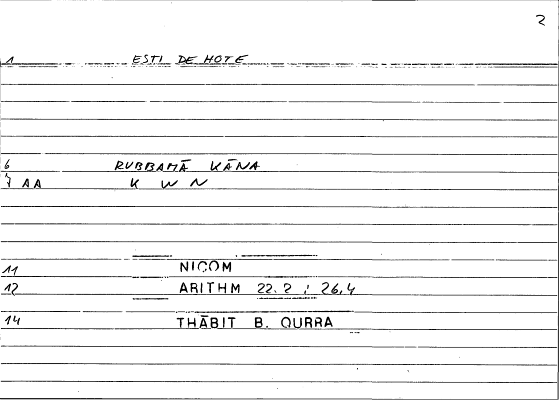 2
1 ESTI DE HOTE
6 RUBBAMĀ KĀNA
7 AA K W N
11 NICOM
12 ARITHM 22.2 ; 26,4
14 THĀBIT B. QURRA